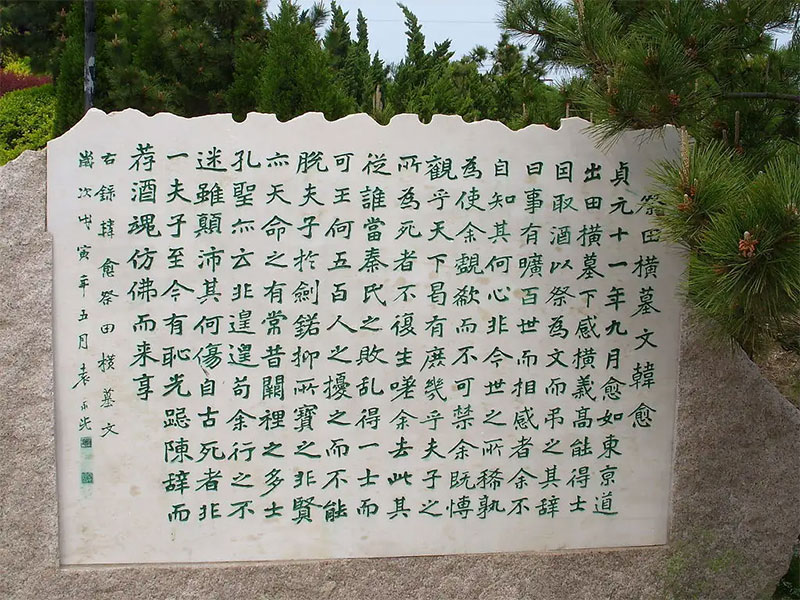 祭田横墓文韓愈
貞元十一年九月愈如東京道
出田横墓下感横義高能得士
因取酒以祭為文而吊之其辞
曰事有曠百世而相感者余不
自知其何心非今世之所稀孰
為使余覩欷而不可禁余既慱
觀乎天下曷有庶幾乎夫子之
所為死者不復生嗟余去此其
從誰當秦氏之敗乱得一士而
可王何五百人之擾之而不能
脱夫子於劍鋩抑所寶之非賢
亦天命之有常昔闕裡之多士
孔聖亦云非遑遑苟余行之不
迷雖顛沛其何傷自古死者非
一夫子至今有恥光跽陳辞而
荐酒魂仿佛而来享
右録韓愈祭田横墓文
歲次戊寅年五月袁